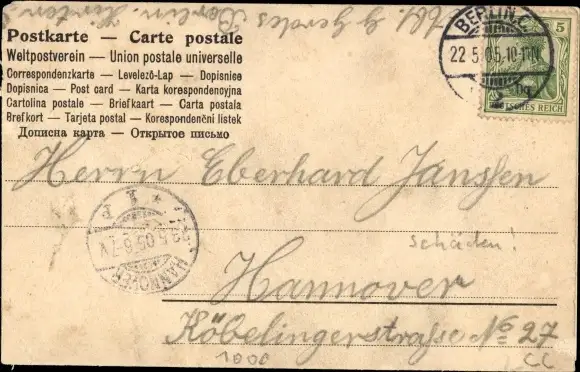 Postkarte — Carte postale
Weltpostverein — Union postale universelle
Correspondenzkarte — Levelező-Lap — Dopisnice
Dopisnica — Post card — Karta korespondencyjna
Cartolina postale — Briefkaart — Carta postala
Brefkort — Tarjeta postal — Korespondenční listek
Дописна карта — Открытое письмо
Berlin.
BERLIN.C.
22.5.05.10-11N.
5
DEUTSCHES REICH
Herrn Eberhard Janssen
HANNOVER
5.05.6-7V.
schäden!
Hannover
Köbelingerstraße No 27
1000
CC